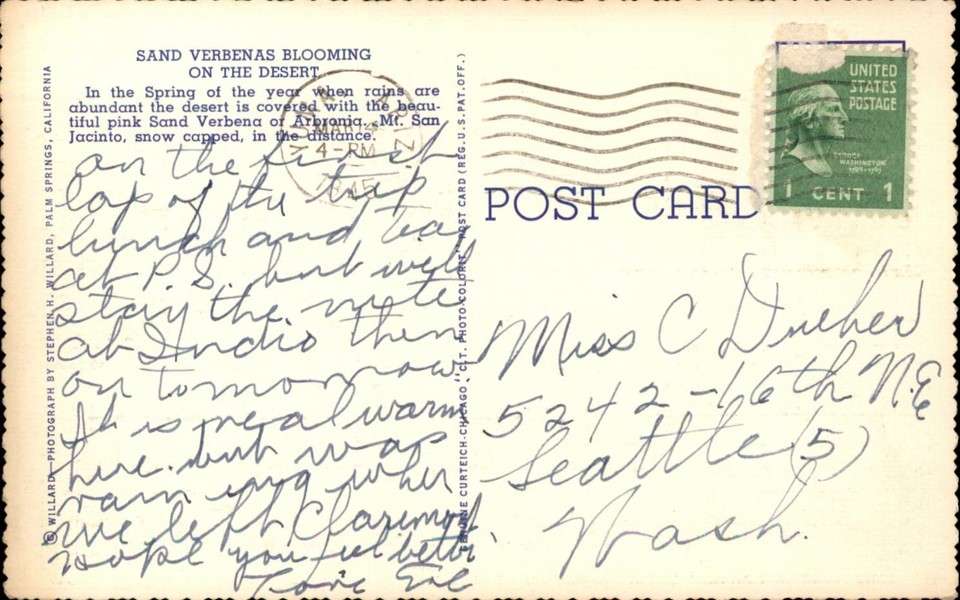 SAND VERBENAS BLOOMING
ON THE DESERT
In the Spring of the year when rains are
abundant the desert is covered with the beau-
tiful pink Sand Verbena or Arbronia. Mt. San
Jacinto, snow capped, in the distance.
on the first
lap of the trip
lunch and tea
at P.S. but will
stay the nite
at Indio then
on tomorrow
It is real warm
here but was
raining when
we left Claremont
Hope you feel better
Love
© WILLARD—PHOTOGRAPH BY STEPHEN H. WILLARD, PALM SPRINGS, CALIFORNIA
GENUINE CURTEICH-CHICAGO "C.T. PHOTO-COLORIT" POST CARD (REG. U.S. PAT. OFF.)
MAR
4-PM
1945
UNITED
STATES
POSTAGE
GEORGE
WASHINGTON
1789-1797
1 CENT 1
POST CARD
Miss C
5242-16th N.E
Seattle (5)
Wash.